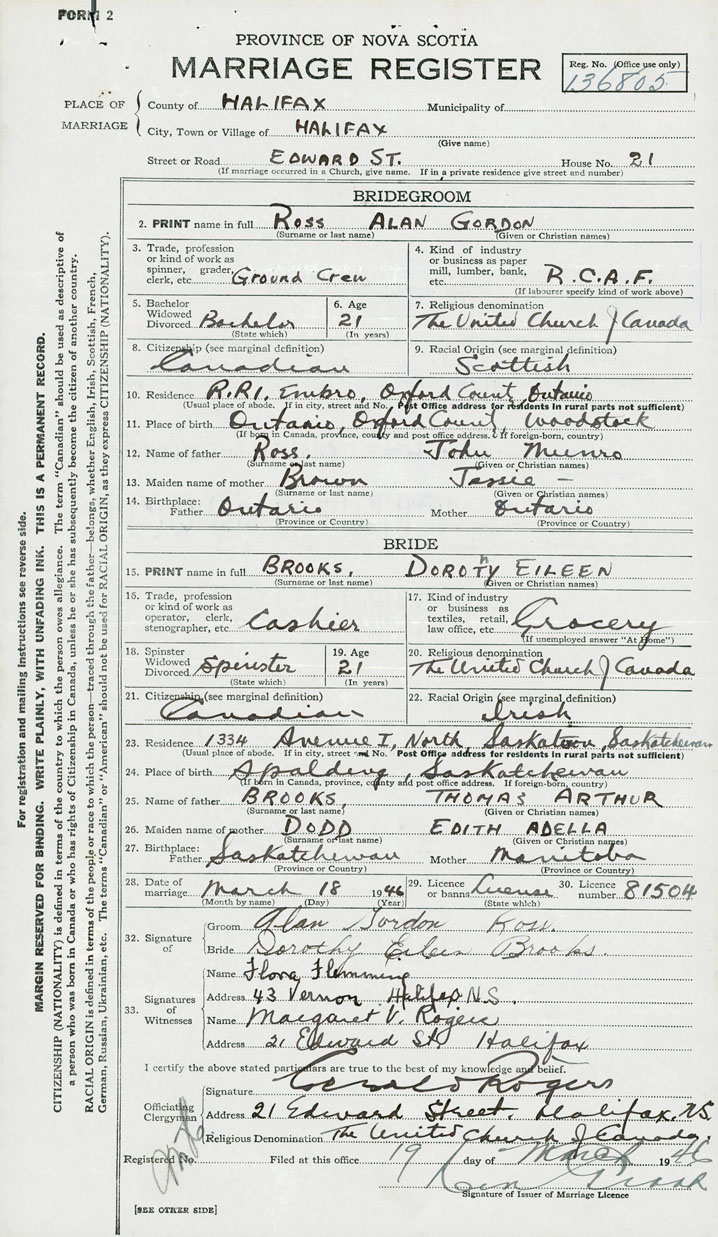 FORM 2
PROVINCE OF NOVA SCOTIA
MARRIAGE REGISTER
Reg. No. (Office use only)
136805
PLACE OF MARRIAGE
County of HALIFAX Municipality of
City, Town or Village of HALIFAX
(Give name)
Street or Road EDWARD ST. House No. 21
(If marriage occurred in a Church, give name. If in a private residence give street and number)
BRIDEGROOM
2. PRINT name in full ROSS ALAN GORDON
(Surname or last name) (Given or Christian names)
3. Trade, profession or kind of work as spinner, grader, clerk, etc. Ground Crew
4. Kind of industry or business as paper mill, lumber, bank, etc. R.C.A.F.
(If labourer specify kind of work above)
5. Bachelor Widowed Divorced Bachelor
(State which)
6. Age 21
(In years)
7. Religious denomination
The United Church of Canada
8. Citizenship (see marginal definition)
Canadian
9. Racial Origin (see marginal definition)
Scottish
10. Residence R.R1, Embro, Oxford County, Ontario
(Usual place of abode. If in city, street and No. Post Office address for residents in rural parts not sufficient)
11. Place of birth Ontario, Oxford County, Woodstock
(If born in Canada, province, county and post office address. If foreign-born, country)
12. Name of father Ross. John Munro
(Surname or last name) (Given or Christian names)
13. Maiden name of mother Brown Jessie -
(Surname or last name) (Given or Christian names)
14. Birthplace: Father Ontario Mother Ontario
(Province or Country) (Province or Country)
BRIDE
15. PRINT name in full BROOKS, DOROTHY EILEEN
(Surname or last name) (Given or Christian names)
16. Trade, profession or kind of work as operator, clerk, stenographer, etc. Cashier
17. Kind of industry or business as textiles, retail, law office, etc. Grocery
(If unemployed answer "At Home")
18. Spinster Widowed Divorced Spinster
(State which)
19. Age 21
(In years)
20. Religious denomination
The United Church of Canada
21. Citizenship (see marginal definition)
Canadian
22. Racial Origin (see marginal definition)
Irish
23. Residence 1334 Avenue I, North, Saskatoon, Saskatchewan
(Usual place of abode. If in city, street and No. Post Office address for residents in rural parts not sufficient)
24. Place of birth Spalding, Saskatchewan
(If born in Canada, province, county and post office address. If foreign-born, country)
25. Name of father BROOKS, THOMAS ARTHUR
(Surname or last name) (Given or Christian names)
26. Maiden name of mother DODD EDITH ADELLA
(Surname or last name) (Given or Christian names)
27. Birthplace: Father Saskatchewan Mother Manitoba
(Province or Country) (Province or Country)
28. Date of marriage March 18 1946
(Month by name) (Day) (Year)
29. Licence or banns License
(State which)
30. Licence number 81504
32. Signature of
Groom Alan Gordon Ross.
Bride Dorothy Eileen Brooks.
33. Signatures of Witnesses
Name Flora Flemming
Address 43 Vernon Halifax N.S.
Name Margaret V. Rogers
Address 21 Edward St. Halifax
I certify the above stated particulars are true to the best of my knowledge and belief.
Officiating Clergyman
Signature Rogers
Address 21 Edward Street. Halifax, N.S.
Religious Denomination The United Church of Canada.
Registered No. Filed at this office 19 day of March 1946
Signature of Issuer of Marriage Licence
[SEE OTHER SIDE]
For registration and mailing instructions see reverse side.
MARGIN RESERVED FOR BINDING. WRITE PLAINLY, WITH UNFADING INK. THIS IS A PERMANENT RECORD.
CITIZENSHIP (NATIONALITY) is defined in terms of the country to which the person owes allegiance. The term "Canadian" should be used as descriptive of
a person who was born in Canada or who has rights of Citizenship in Canada, unless he or she has subsequently become the citizen of another country.
RACIAL ORIGIN is defined in terms of the people or race to which the person—traced through the father—belongs, whether English, Irish, Scottish, French,
German, Russian, Ukrainian, etc. The terms "Canadian" or "American" should not be used for RACIAL ORIGIN, as they express CITIZENSHIP (NATIONALITY).